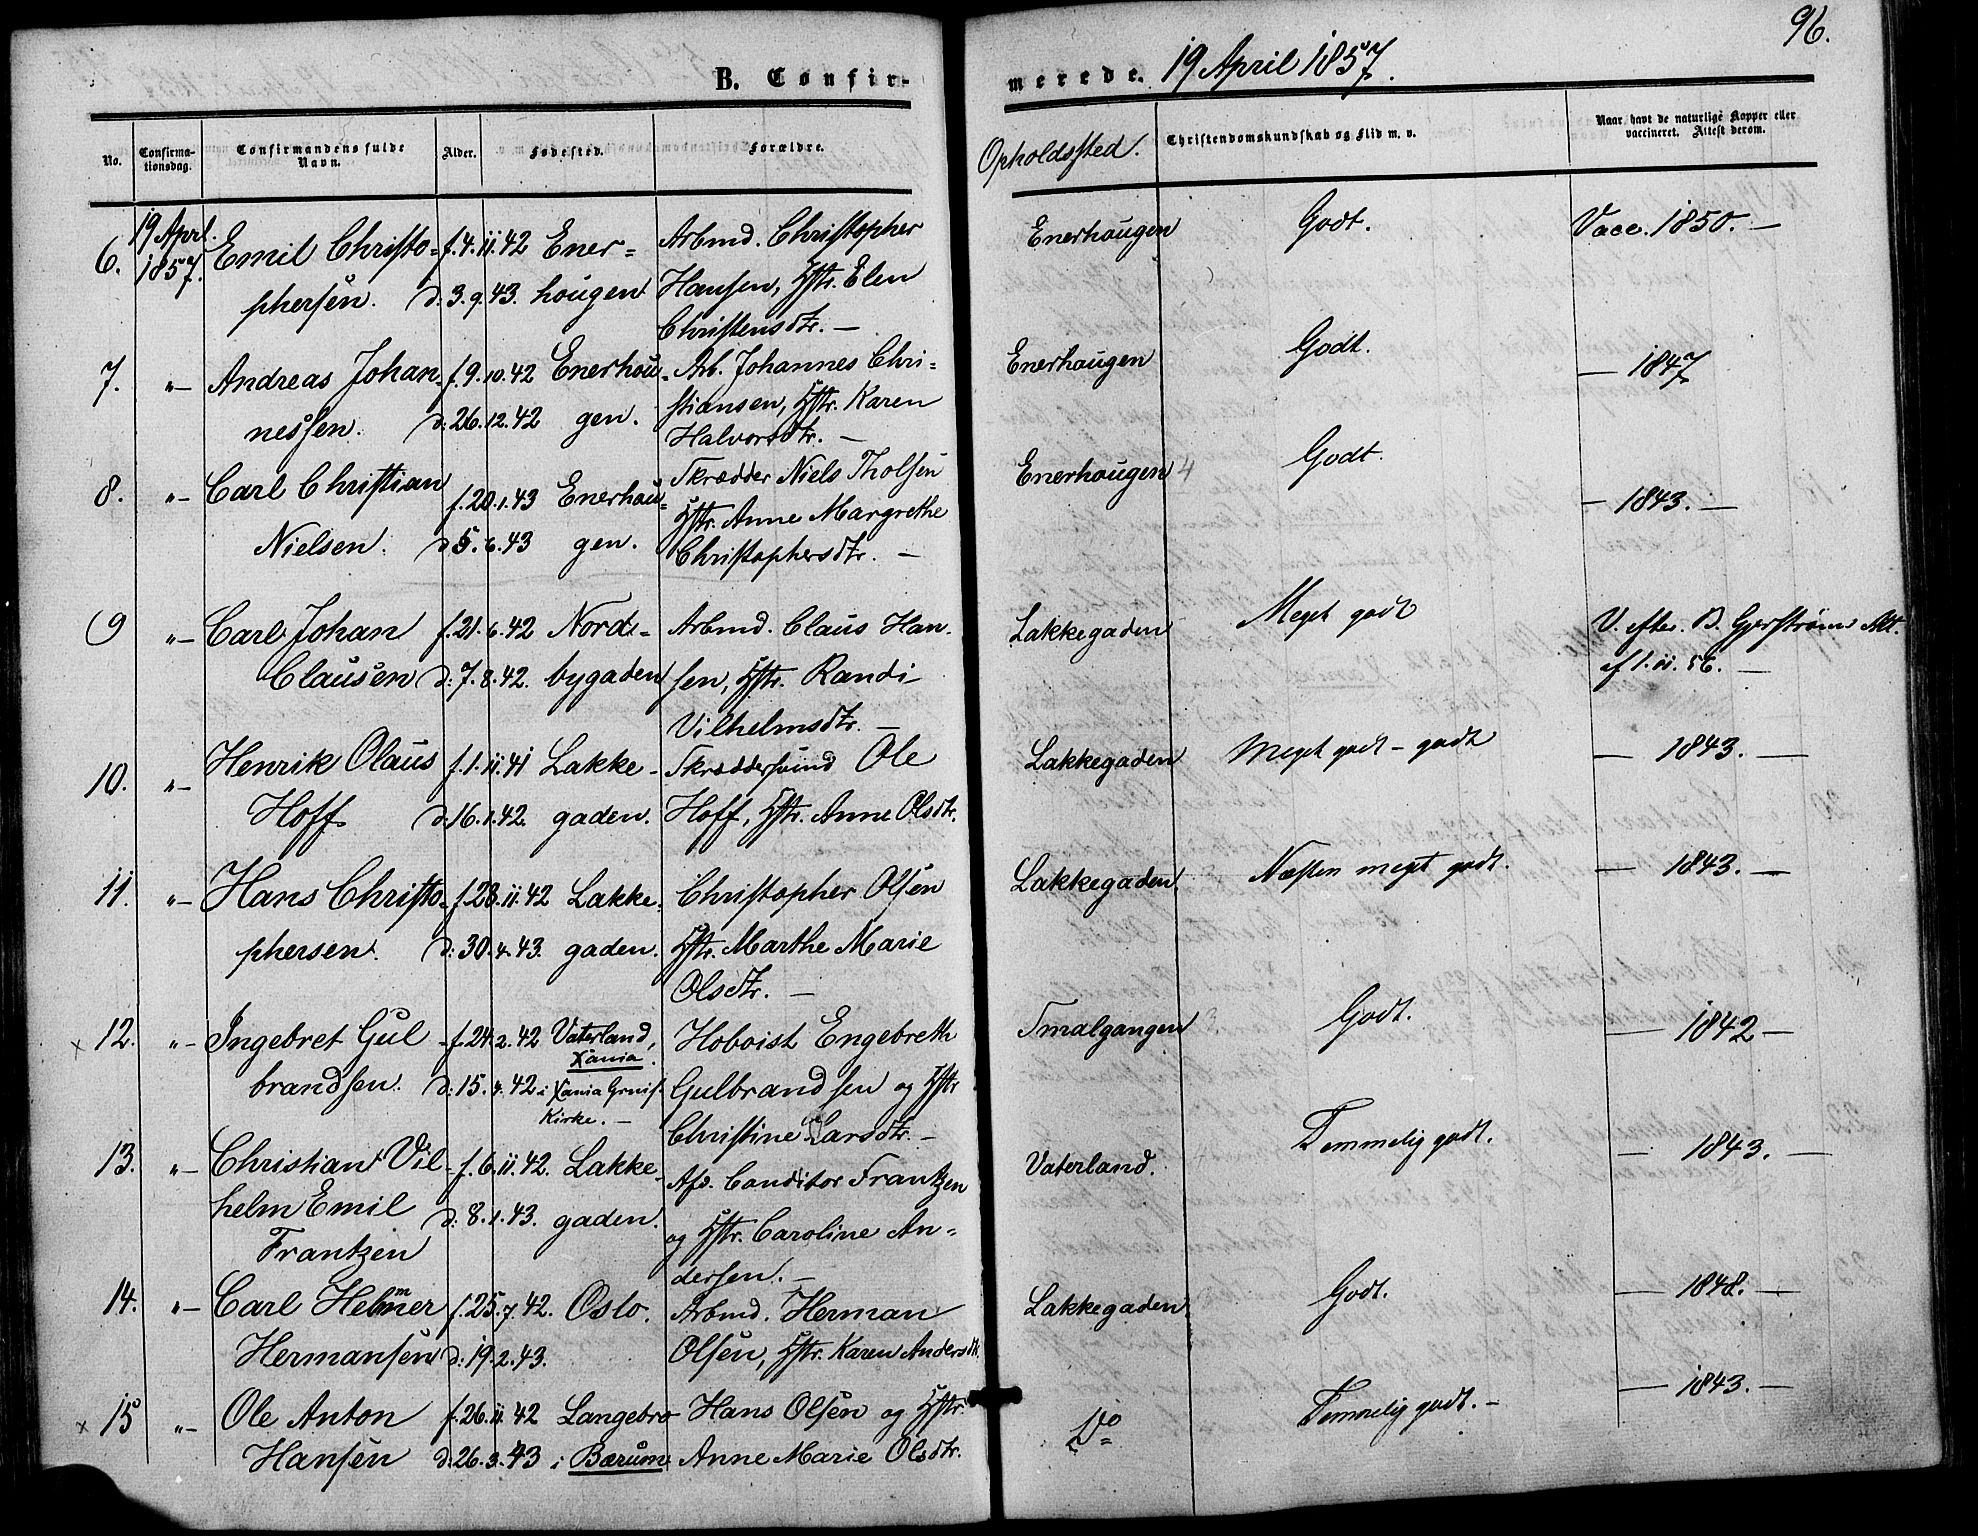 96.
B. Confir-
merede. 19 April 1857.
No.
Confirma-
tionsdag.
Confirmandens fulde
Navn.
Alder.
Fødested.
Forældre.
Opholdssted.
Christendomskundskab og Flid m. v.
Naar havt de naturlige Kopper eller
vaccineret. Attest derom.
19 April.
1857.
6. Emil Christo= f. 4.11.42 Ener= Arbmd. Christopher Enerhougen Godt. Vacc. 1850. —
phersen. d: 3.9.43. hougen Hansen, Hstr. Elen
Christensdtr. —
7. "- Andreas Johan= f. 9.10.42 Enerhou= Arb. Johannes Chri= Enerhaugen Godt. — 1847
nessen. d: 26.12.42 gen. stiansen, Hstr. Karen
Halvorsdtr. —
8. "- Carl Christian f. 20.1.43 Enerhau= Skrædder Niels Tholsen Enerhougen 4 Godt. — 1843. —
Nielsen. d 5.6.43 gen. Hstr. Anne Margrethe
Christophersdtr. —
9 "- Carl Johan f. 21.6.42 Nord= Arbmd. Claus Han- Lakkegaden Meget godt V. efter B. Att.
Clausen d: 7.8.42. bygaden sen, Hstr. Randi af 1.11.56. —
Vilhelmsdtr. —
10. "- Henrik Olaus f. 1.11.41 Lakke- Skræddersvend Ole Lakkegaden Meget godt - godt — 1843. —
Hoff d. 16.1.42. gaden. Hoff, Hstr. Anne Olsdtr.
11. "- Hans Christo= f. 28.11.42 Lakke= Christopher Olsen Lakkegaden Næsten meget godt. — 1843. —
phersen. d: 30.4.43. gaden. Hstr. Marthe Marie
Olsdtr. —
x 12. "- Ingebret Gul- f. 24.2.42 Vaterland, Hoboist Engebreth Smalgangen Godt. — 1842 —
Xania.
brandsen. d: 15.4.42 i Xania Grnis. Gulbrandsen og Hstr
Kirke. — Christine Larsdtr. —
13. "- Christian Vil- f. 6.11.42. Lakke- Afd. Conditor Frantzen Vaterland. Temmelig godt. — 1843. —
helm Emil d: 8.1.43. gaden. og Hstr. Caroline An=
Frantzen dersen. —
14. "- Carl Helmer f. 25.7.42. Oslo. Arbmd. Herman Lakkegaden Godt. — 1848. —
Hermansen d: 19.2.43. Olsen, Hstr. Karen Andersdtr.
x 15 "- Ole Anton f. 26.11.42 Langebro Hans Olsen og Hstr. Do Temmelig godt. - — 1843. —
Hansen d: 26.3.43 i Bærum. Anne Marie Olsdtr.